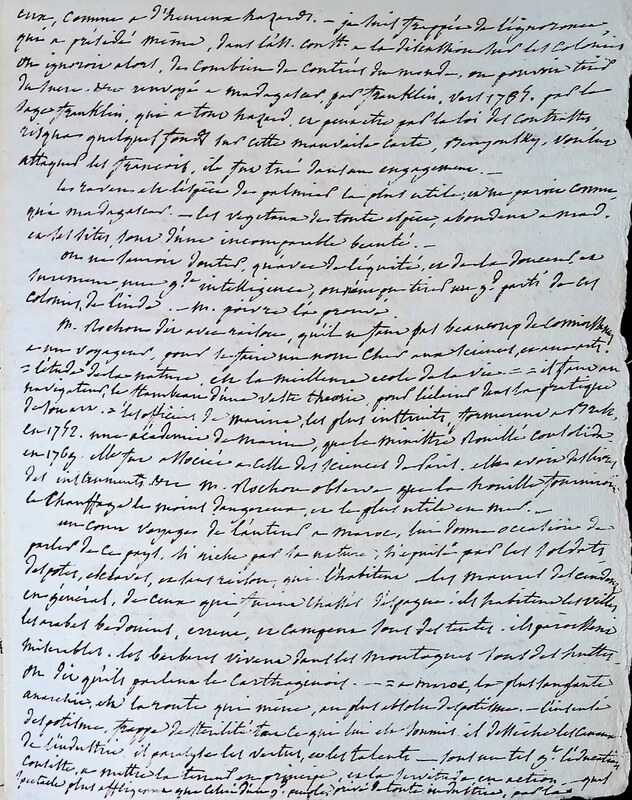 eux, comme a d'heureux hazards. — je suis frappée de l'ignorance,
qui a présidé même, dans l'ass. constte. a la discussion sur les colonies
on ignoroit alors, de combien de contrées du monde, on pouvoit tirer
du sucre. envoyé a madagascar, par franklin, vers 1785. par le
sage franklin, qui a tout hazard, et peut être par la loi des contrastes
risqua quelques fonds sur cette mauvaise carte, Benyousky, voulut
attaquer les françois, il fut tué dans un engagement. —
les raven est l'espèce de palmier la plus utile, et ne paroit connue
qu'a madagascar. — les vegetaux de toute espèce, abondent a mad.
et les sites sont d'une incomparable beauté. —
on ne sauroit douter, qu'avec de l'équité, et de la douceur et
surement une gde. intelligence, on tirer un gd. parti de ces
colonies, de l'inde. — M. poivre l'a prouvé
M. Rochon dit avec raison, qu'il ne faut pas beaucoup de
a un voyageur, pour se faire un nom cher aux sciences, et aux arts.
= l'étude de la nature, est la meilleure ecole de la vie = = il faut au
navigateur, le flambeau d'une vaste theorie, pour l'éclairer dans la pratique
de son art. = les officiers de marine, les plus instruits, formerent a Brest,
en 1752. une académie de marine, que le ministre Rouillé consolida.
en 1769. elle fut associée a celle des sciences de Paris. elle avoit des livres
des instruments, M. Rochon observe que la houille fourniroit
le chauffage le moins dangereux, et le plus utile en mer. —
un court voyage de l'auteur a maroc, lui donne occasion de
parler de ce pays, si riche par la nature, si épuisé par les soldats,
despotes, esclaves, et sans raison, qui l'habitent les maures descendent
en général, de ceux qui furent chassés d'espagne: ils habitent les villes
les arabes bedouins, errent, et campent sous des tentes. ils paroissent
miserables. les berberes vivent dans les montagnes sous des huttes.
on dit qu'ils parlent le Carthaginois. — = a maroc, la plus sanglante
anarchie, est la route qui mene, au plus absolu despotisme. — l'insensé
despotisme, frappe de sterilité tout ce que lui est soumis, et dessèche les canaux
de l'industrie, il paralyse les vertus, et les talents — sous un tel gt. l'éducation
consiste, a mettre la terreur en principe, et la servitude en action — quel
spectacle plus affligeant que celui d'un gd. peuple, privé de toute industrie, par la